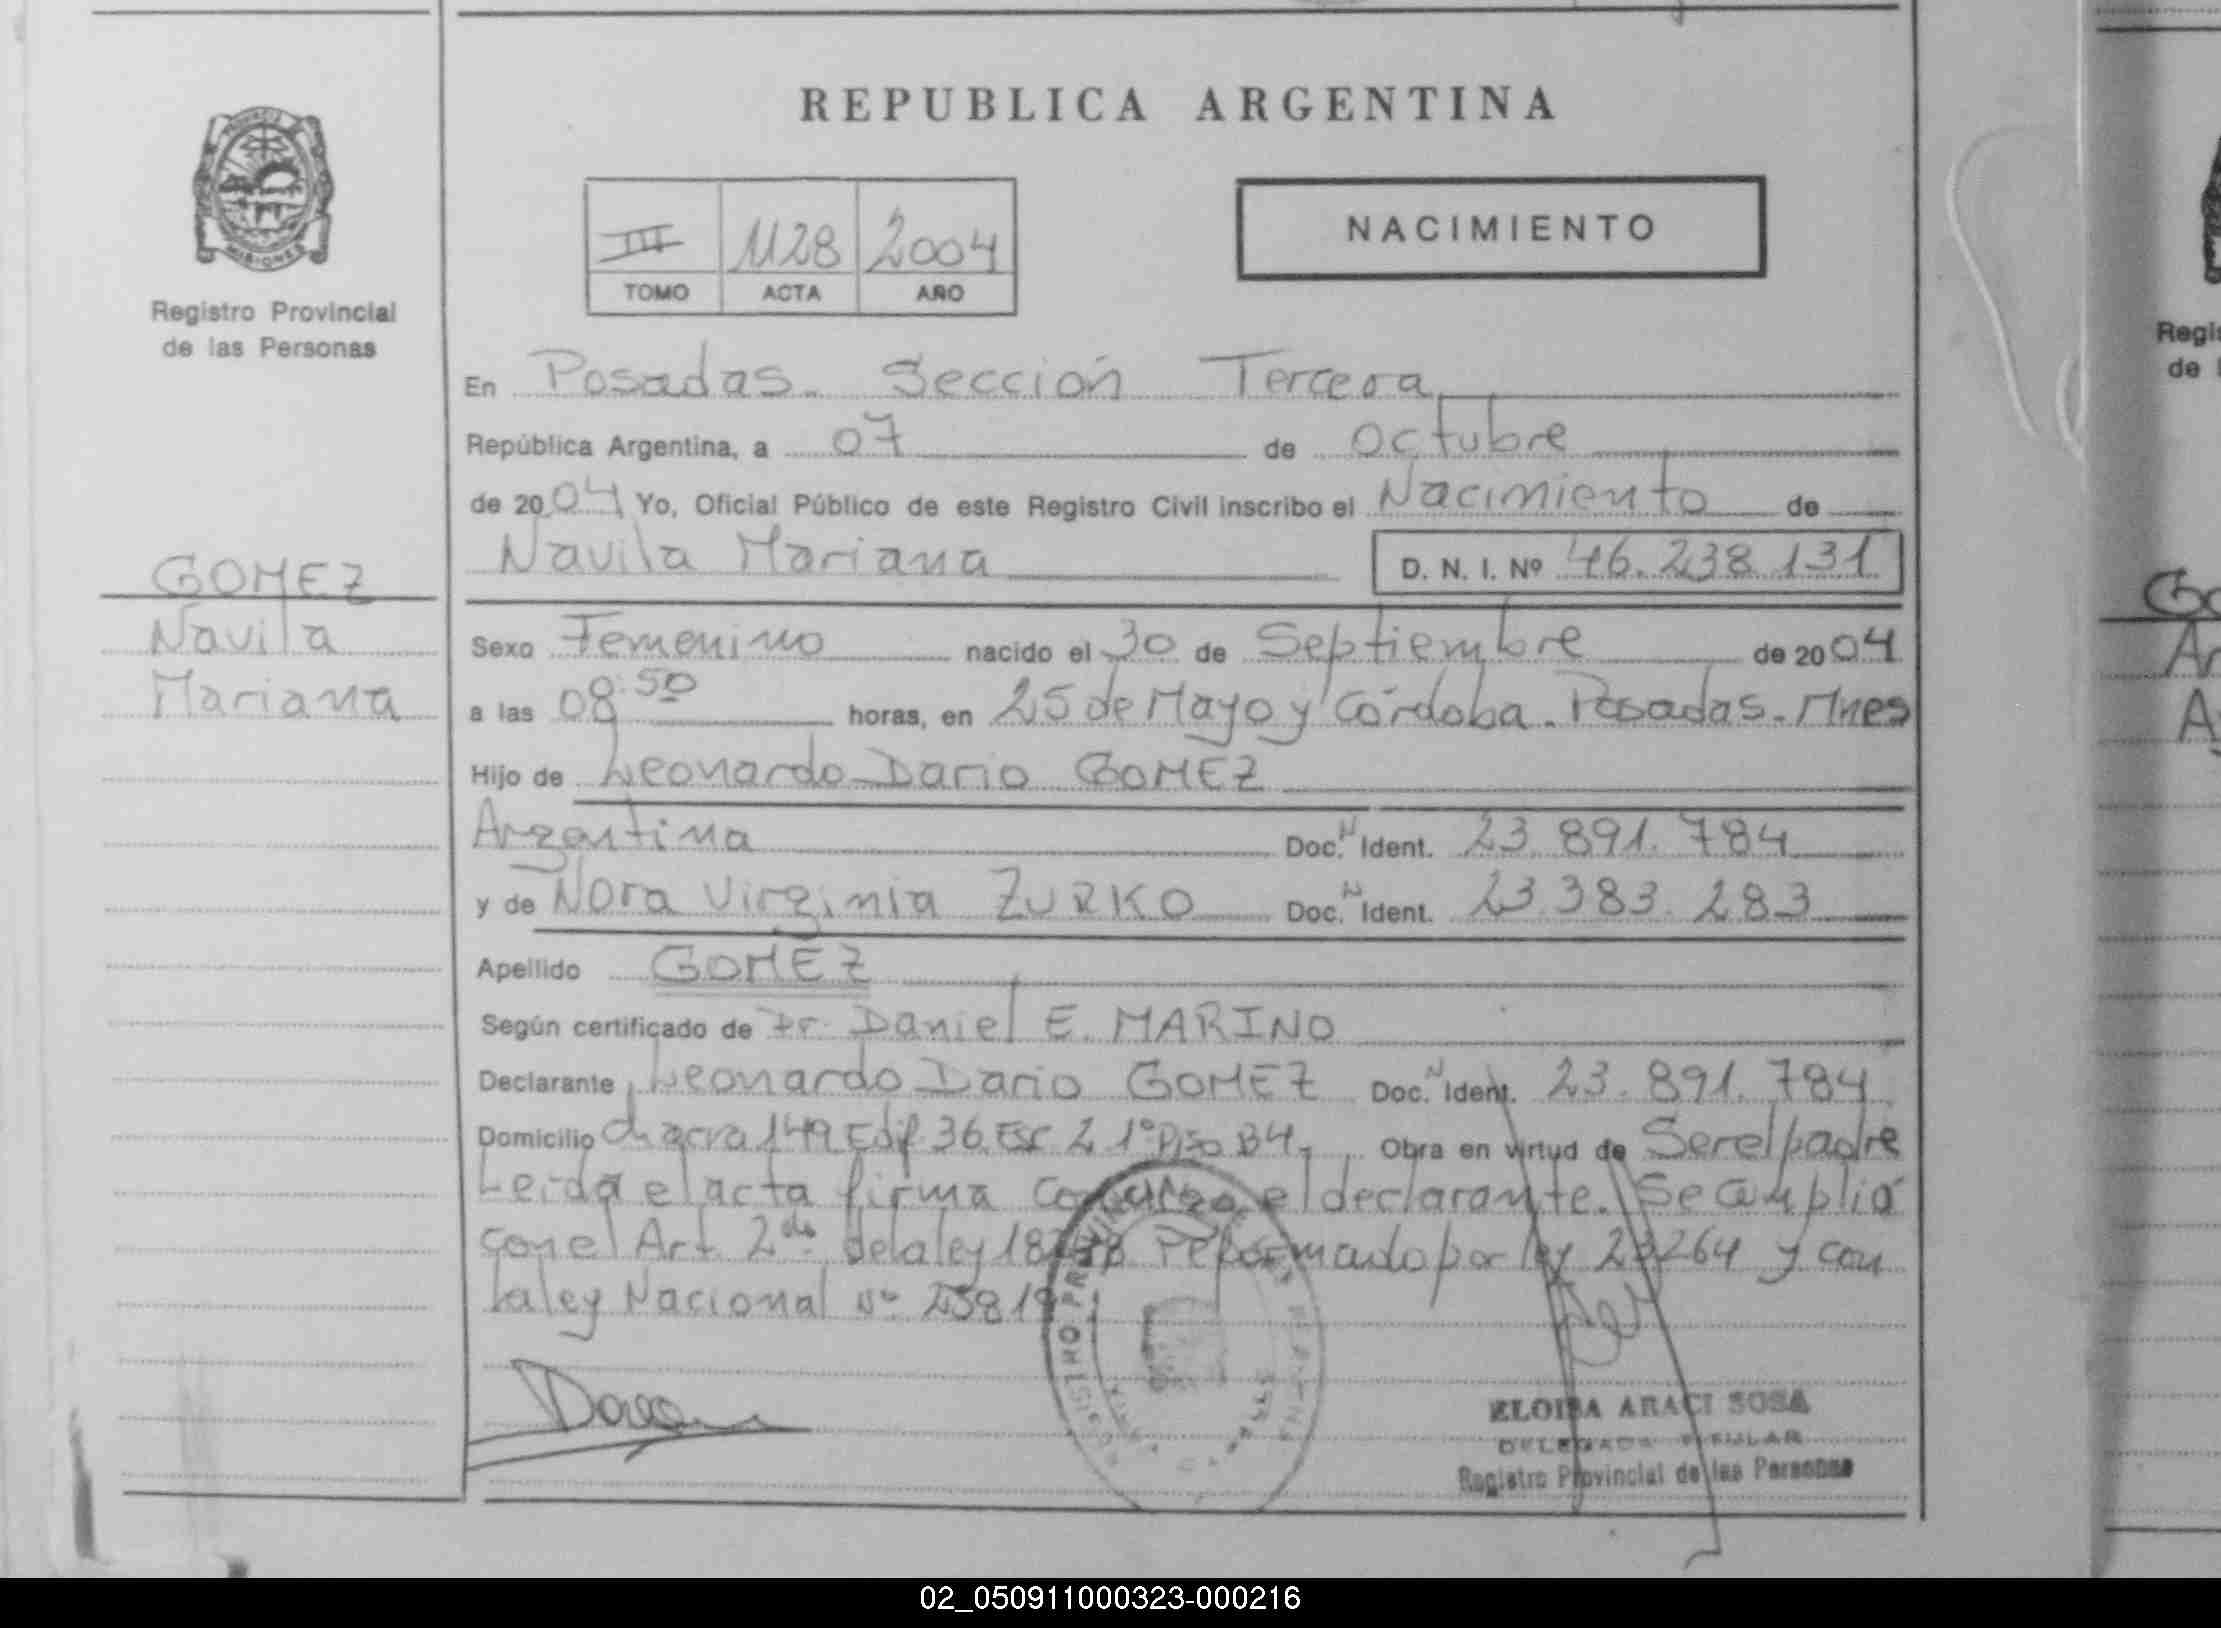 REPUBLICA ARGENTINA
PROVINCIA
MISIONES
Registro Provincial
de las Personas
III 1128 2004
TOMO ACTA AÑO
NACIMIENTO
En Posadas. Sección Tercera
República Argentina, a 07 de octubre
de 2004 Yo, Oficial Público de este Registro Civil inscribo el Nacimiento de
Navila Mariana D. N. I. Nº 46.238.131
GOMEZ
Navila
Mariana
Sexo Femenino nacido el 30 de Septiembre de 2004
a las 08:50 horas, en 25 de Mayo y Córdoba. Posadas. Mnes
Hijo de Leonardo Dario GOMEZ
Argentina Doc. N Ident. 23.891.784
y de Nora Virginia ZURKO Doc. N Ident. 23.383.283
Apellido GOMEZ
Según certificado de Dr. Daniel E. MARINO
Declarante Leonardo Dario GOMEZ Doc. N Ident. 23.891.784
Domicilio Chacra 149 Edif. 36. Esc 2 1º Piso B4 Obra en virtud de Ser el padre
Leida el acta firma conmigo el declarante. Se cumplió
con el Art. 2do. de la ley reformado por ley 23264 y con
la ley Nacional Nº
REGISTRO PROVINCIAL
ELOISA ARACI SOSA
DELEGADA TITULAR
Registro Provincial de las Personas
Regis
de l
Go
Ar
A
02_050911000323-000216